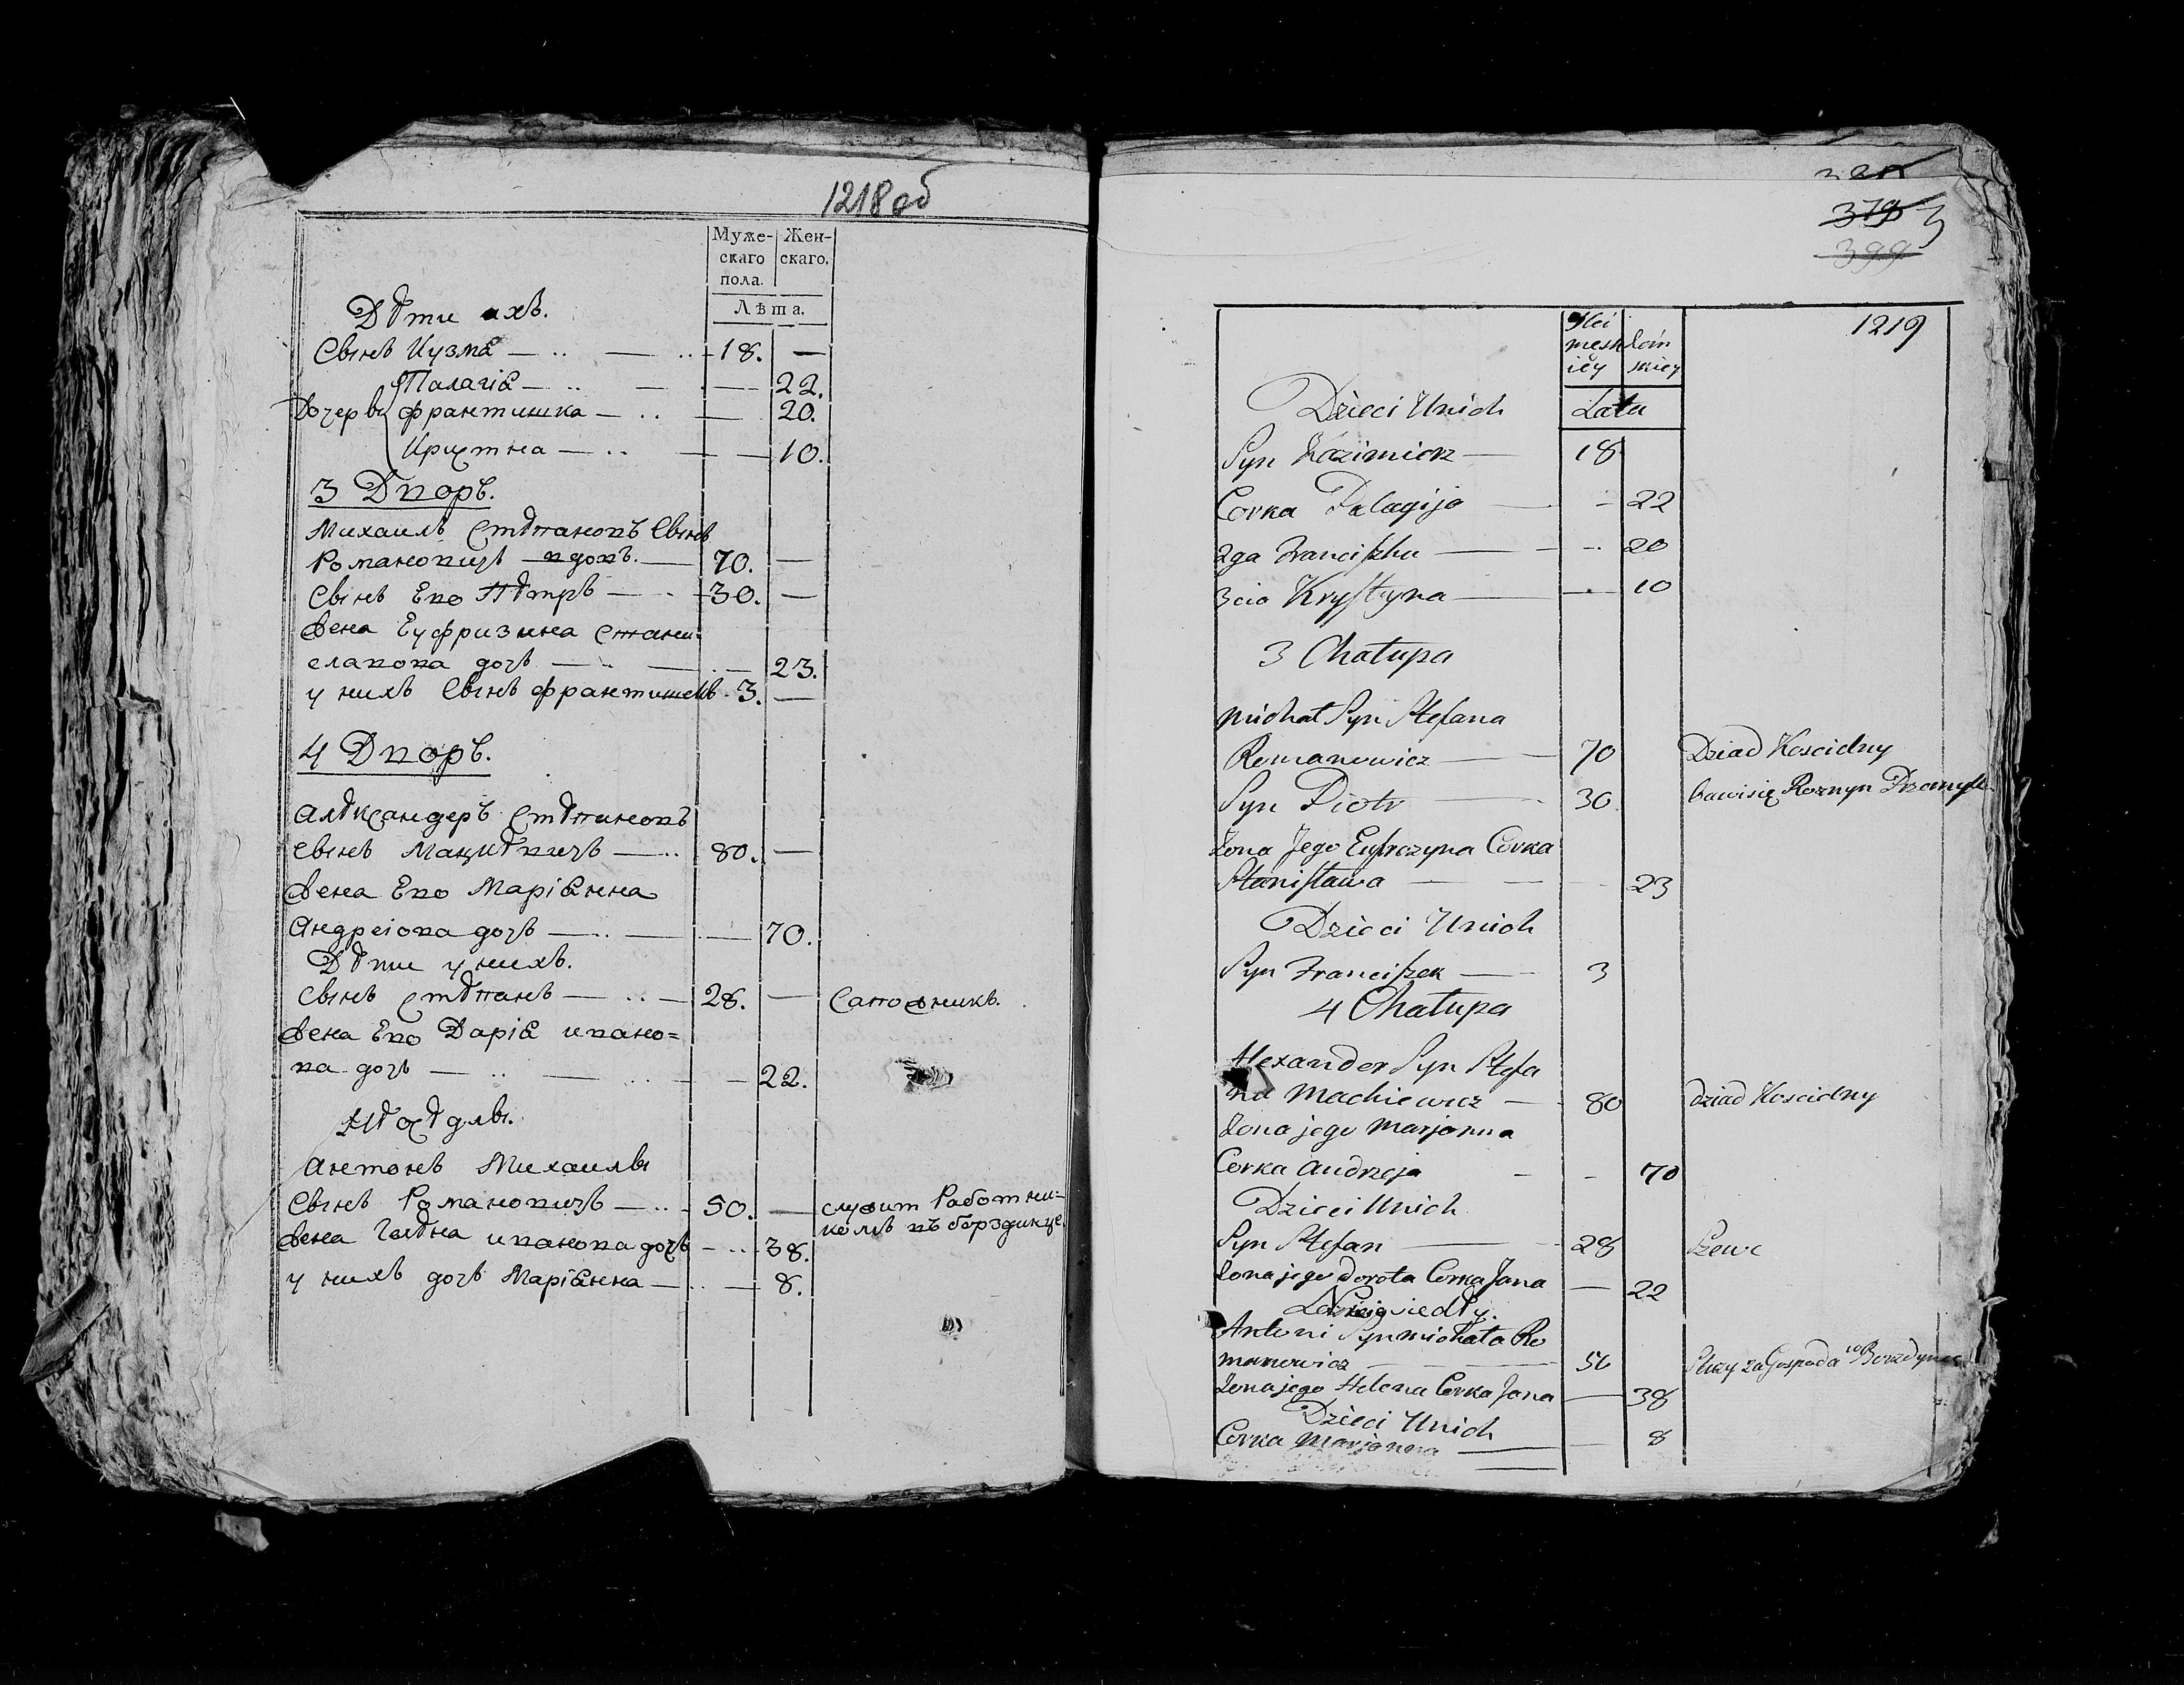 1218 об
Муже-
скаго
пола.
Жен-
скаго.
Лѣта.
Дѣти ихъ.
Сынъ Кузма 18. —
Палагія — 22.
Дочеры Франтишка — 20.
Кристна — 10.
3 Дворъ.
Михаилъ Стѣпановъ Сынъ
Романовичъ вдовъ. 70. —
Сынъ Ево Пѣтръ 30. —
Жена Еуфризина Стани=
славова дочь — 23.
у нихъ Сынъ Франтишекъ 3. —
4 Дворъ.
Алѣксандеръ Стѣпановъ
Сынъ Мацкѣвичъ 80. —
Жена Ево Маріянна
Андреіова дочь — 70.
Дѣти у нихъ.
Сынъ Стѣпанъ 28. — Сапожникъ.
Жена Ево Дарія ивано=
ва дочь — 22.
Антонъ Михаилы
Сынъ Романовичъ 50. — служит Работни=
комъ въ борздынце.
Жена Гелѣна иванова дочь — 38.
у нихъ дочь Маріянна — 8.
379 3
399
1219
Mei
mesk
iey
Żeń
skiey
Lata
Dzieci Unich
Syn Kazimierz 18
Corka Palagija 22
2ga Franciszka 20
3cia Krystyna 10
3 Chałupa
Michał Syn Stefana
Romanowicz 70 Dziad Koscielny
Syn Piotr 30 bawi się Roznym Przemysł
Żona Jego Eufrozyna Corka
Stanisława 23
Dzieci Unich
Syn Franciszek 3
4 Chałupa
Alexander Syn Stefa
na Mackiewicz 80 dziad Koscielny
Żona jego Marjanna
Corka Andrzeja 70
Dzieci Unich
Syn Stefan 28 Szewc
Żona jego Dorota Corka Jana 22
Antoni Syn Michała Ro
manowicz 50 Służy za Gospoda w Borzdyn
Żona jego Helena Corka Jana 38
Dzieci Unich
Corka Marjanna 8